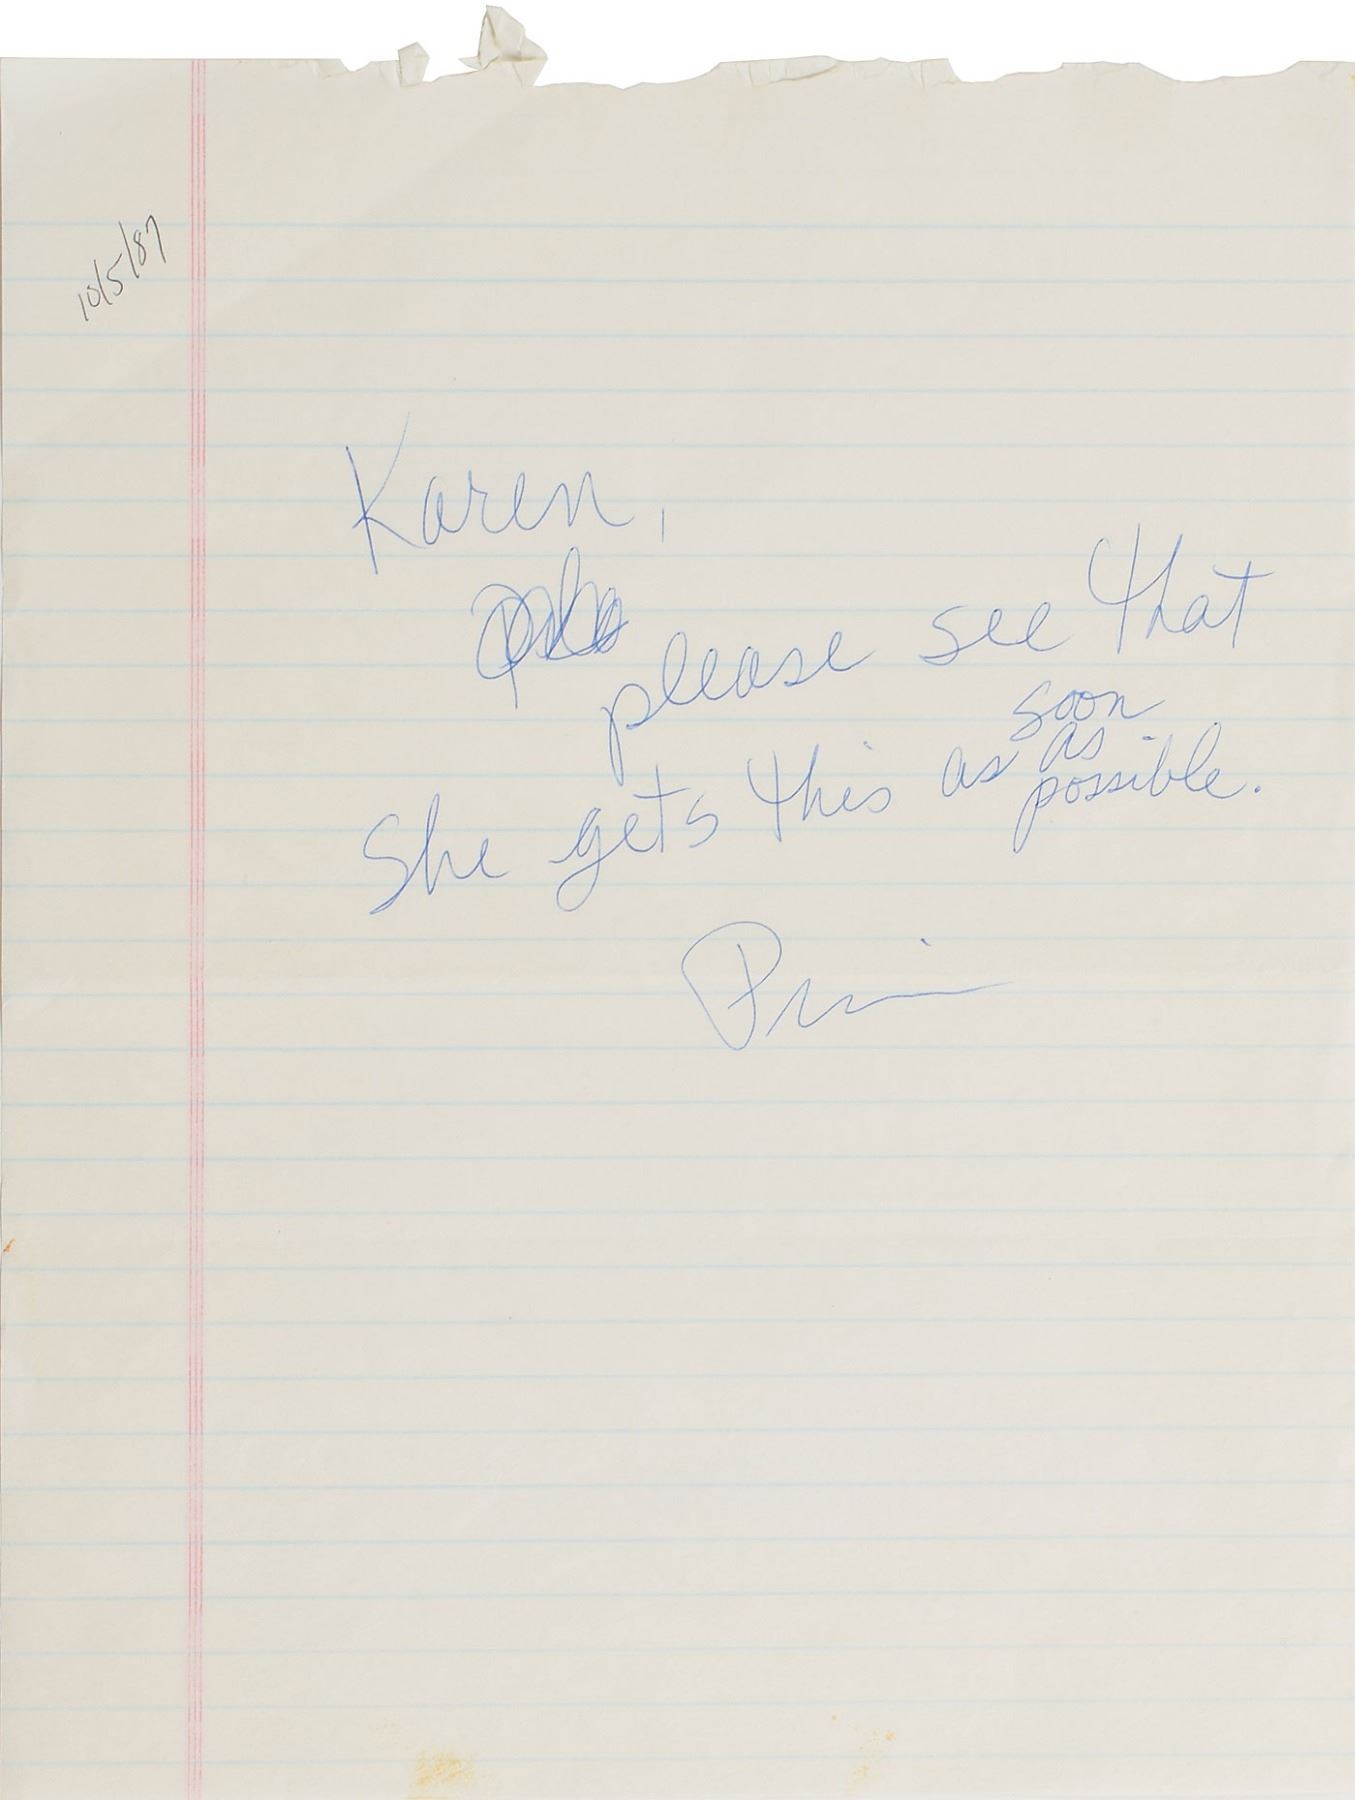 10/5/87
Karen,
please see that
She gets this as soon
as
possible.